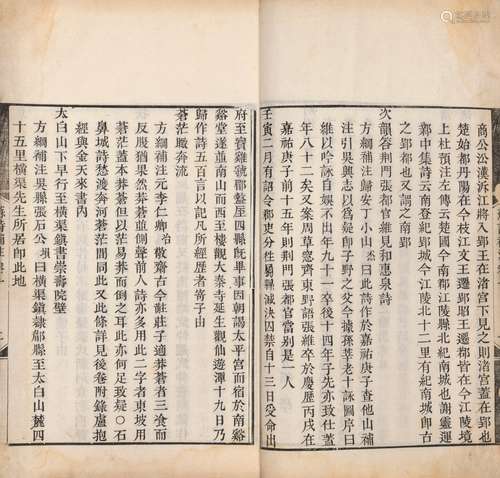 商公㳂漢泝江將入郢王在渚宮下見之則渚宮蓋在郢也
楚始都丹陽在今枝江文王遷郢昭王遷鄀皆在今江陵境
上杜預注左傳云楚國今南郡江陵縣北紀南城也謝靈運
鄴中集詩云南登紀郢城今江陵北十二里有紀南城即古
之郢都也又謂之南郢
次韻答荆門張都官維見和惠泉詩
方綱補注歸安丁小山杰曰此詩作於嘉祐庚子查他山補
注引吳興志以爲疑即子野之父今據孫莘老十詠圖序曰
維以吟詠自娛不出年九十一卒後十四年子先亦致仕蓋
年八十二矣又案周草窓齊東野語張維卒於慶歷丙戌在
嘉祐庚子前十五年則荆門張都官當别是一人
壬寅二月有詔令郡吏分往屬縣減決囚禁自十三日受命出
府至寶雞虢郿盩厔四縣旣畢事因朝謁太平宮而宿於南谿
谿堂遂並南山而西至樓觀大秦寺延生觀仙遊潭十九日乃
歸作詩五百言以記凡所經歷者寄子由
蒼茫瞰奔流
方綱補注元李仁卿冶敬齋古今黈莊子適莽蒼者三食而
反腹猶果然莽蒼並側聲前人詩亦多用此二字者東坡用
蒼茫蓋本莽蒼但以茫易莽而倒之耳此亦何足致疑○石
鼻城詩愁渡奔河蒼茫間同此又此條詳見後卷附錄廬抱
經與金天來書內
太白山下早行至橫渠鎮書崇壽院壁
方綱補注吳縣張石公塤曰橫渠鎮隸郿縣至太白山麓四
十五里橫渠先生所居即此地